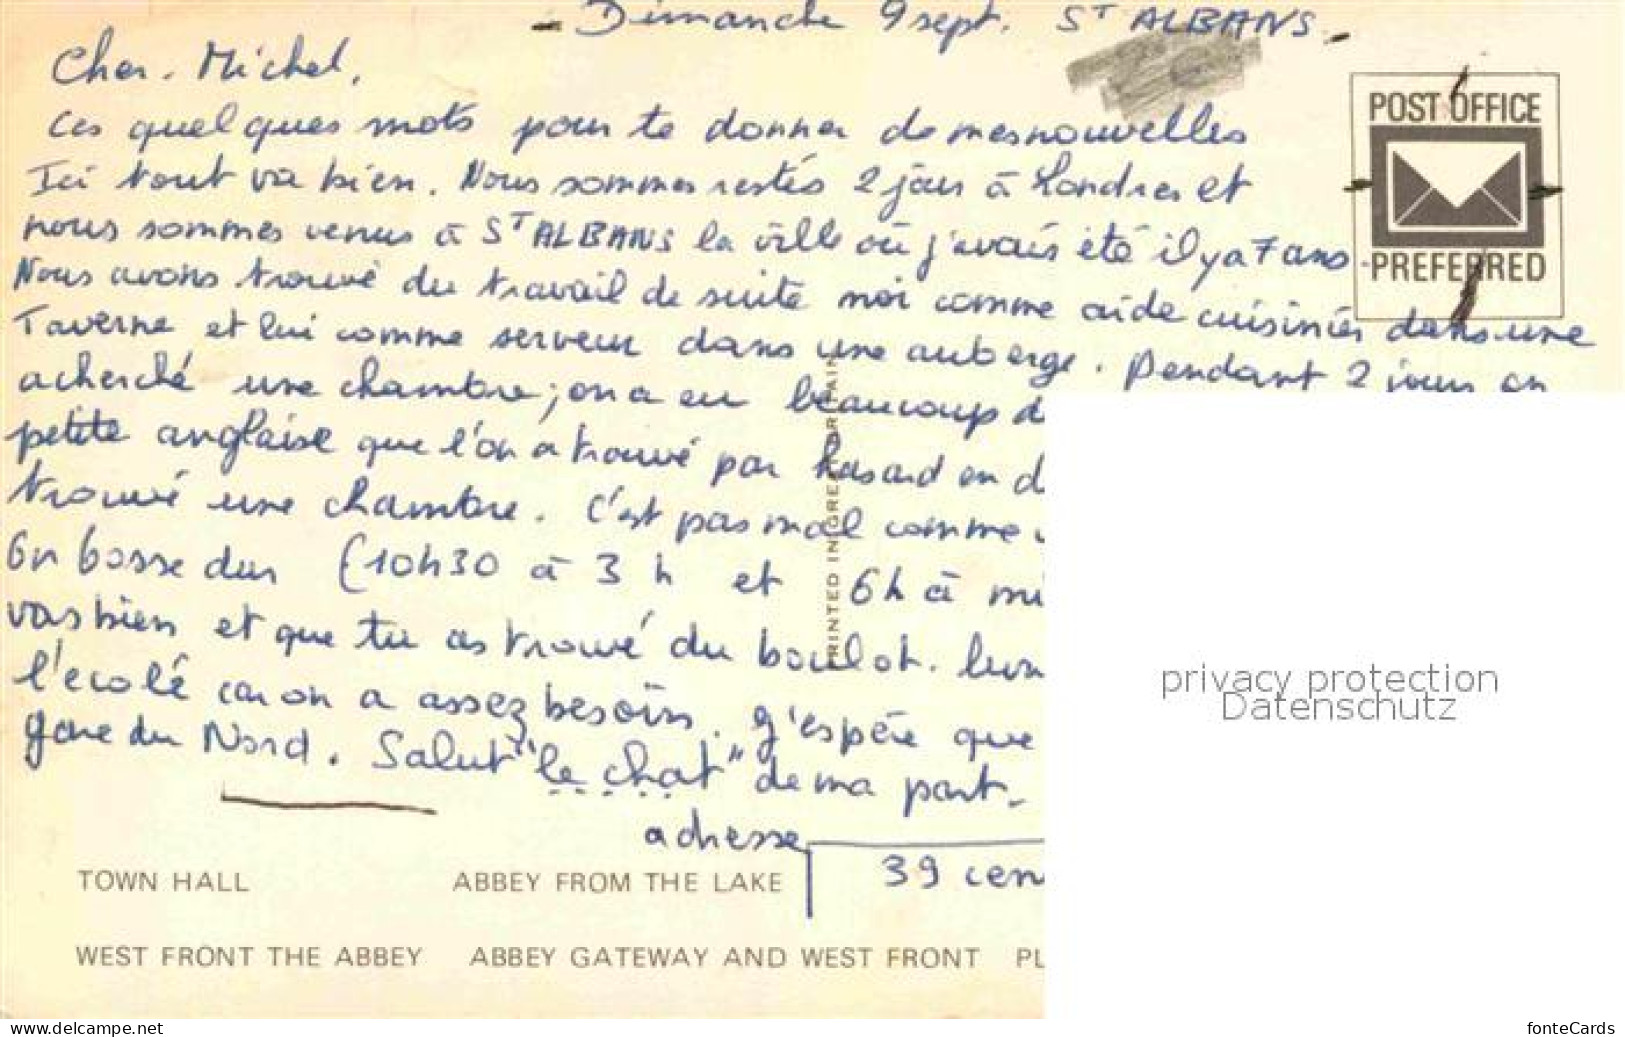 - Dimanche 9 sept. ST ALBANS -
Cher. Michel,
Ces quelques mots pour te donner de mes nouvelles
Ici tout va bien. Nous sommes restés 2 jours à Londres et
nous sommes venus à ST ALBANS la ville où j'avais été il y a 7 ans.
Nous avons trouvé du travail de suite moi comme aide cuisinier dans une
Taverne et lui comme serveur dans une auberge. Pendant 2 jours on
a cherché une chambre; on a eu beaucoup d
petite anglaise que l'on a trouvé par hasard en d
trouvé une chambre. C'est pas mal comme
On bosse dur (10h30 à 3 h et 6h à mi
vas bien et que tu as trouvé du boulot.
l'ecolé car on a assez besoin. J'espére que
gare du Nord. Salut "le chat" de ma part.
adresse
39 cen
POST OFFICE
PREFERRED
PRINTED IN GREAT BRITAIN
TOWN HALL ABBEY FROM THE LAKE
WEST FRONT THE ABBEY ABBEY GATEWAY AND WEST FRONT PL
privacy protection
Datenschutz
www.delcampe.net
fonteCards